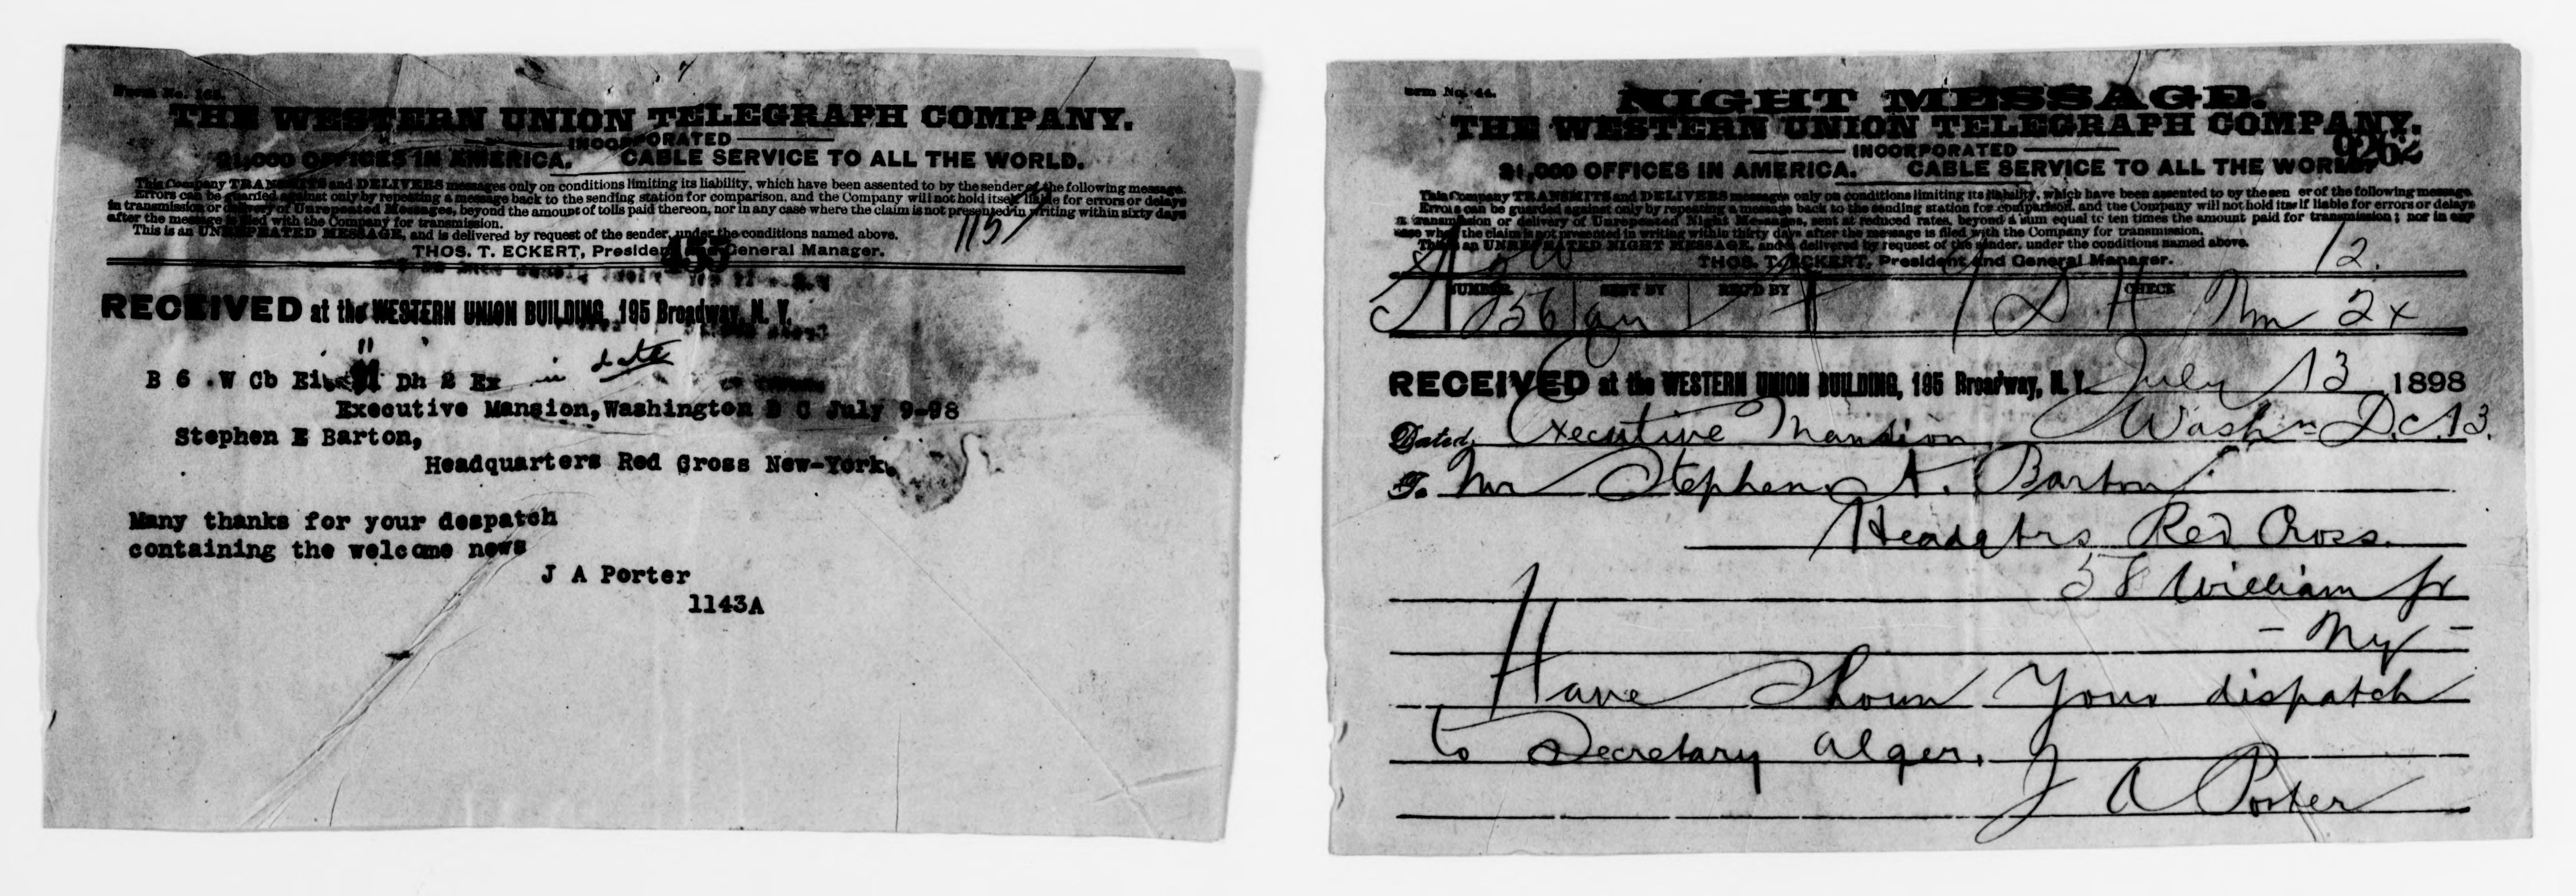 THE WESTERN UNION TELEGRAPH COMPANY.
INCORPORATED
21,000 OFFICES IN AMERICA. CABLE SERVICE TO ALL THE WORLD.
This Company TRANSMITS and DELIVERS messages only on conditions limiting its liability, which have been assented to by the sender of the following message.
Errors can be guarded against only by repeating a message back to the sending station for comparison, and the Company will not hold itself liable for errors or delays
in transmission or delivery of Unrepeated Messages, beyond the amount of tolls paid thereon, nor in any case where the claim is not presented in writing within sixty days
after the message is filed with the Company for transmission.
This is an UNREPEATED MESSAGE, and is delivered by request of the sender, under the conditions named above.
1157
THOS. T. ECKERT, President and General Manager.
RECEIVED at the WESTERN UNION BUILDING, 195 Broadway, N. Y.
date
B 6 .W Cb Dh 2 Ex
Executive Mansion, Washington D C July 9-98
Stephen E Barton,
Headquarters Red Cross New-York.
Many thanks for your despatch
containing the welcome news
J A Porter
1143A
Form No. 44.
NIGHT MESSAGE.
THE WESTERN UNION TELEGRAPH COMPANY.
9262
INCORPORATED
21,000 OFFICES IN AMERICA. CABLE SERVICE TO ALL THE WORLD.
This Company TRANSMITS and DELIVERS messages only on conditions limiting its liability, which have been assented to by the sen er of the following message.
Errors can be guarded against only by repeating a message back to the sending station for comparison, and the Company will not hold itself liable for errors or delays
in transmission or delivery of Unrepeated Night Messages, sent at reduced rates, beyond a sum equal to ten times the amount paid for transmission; nor in any
case where the claim is not presented in writing within thirty days after the message is filed with the Company for transmission.
This is an UNREPEATED NIGHT MESSAGE, and is delivered by request of the sender, under the conditions named above.
THOS. T. ECKERT, President and General Manager.
12.
NUMBER SENT BY REC'D BY CHECK
2x
RECEIVED at the WESTERN UNION BUILDING, 195 Broadway, N. Y. July 13 1898
Dated Executive Mansion Washn D.C. 13.
To Mr Stephen A. Barton
Headqtrs Red Cross.
58 William St
- Ny -
Have Shown Your dispatch
to Secretary Alger.
J A Porter